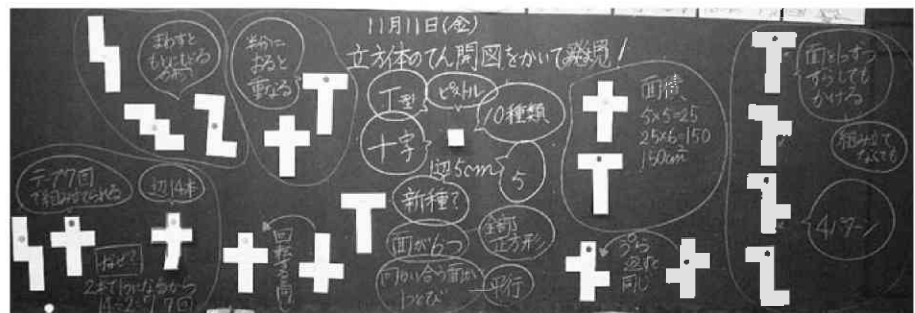 11月11日(金)
立方体のてん開図をかいて発見!
まわすと
もとにもどる
半分に
おると
重なる
T型
ピストル
10種類
十字
1辺5cm
5
新種?
面が6つ
全部
正方形
向かい合う面が
平行
面積
5×5=25
25×6=150
150cm²
面を1つずつ
ずらしても
かける
組み立て
なくても
4パターン
テープ7回
で組み立てられる
辺14本
なぜ?
14÷2=7 7回
回転する同じ
うら
返すと
同じ